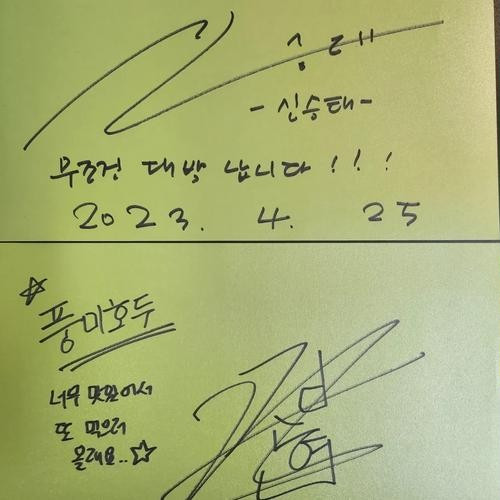 승태
-신승태-
무조건 대박 납니다!!!
2023. 4. 25
☆
풍미호두
너무 맛있어서
또 먹으러
올래요..☆